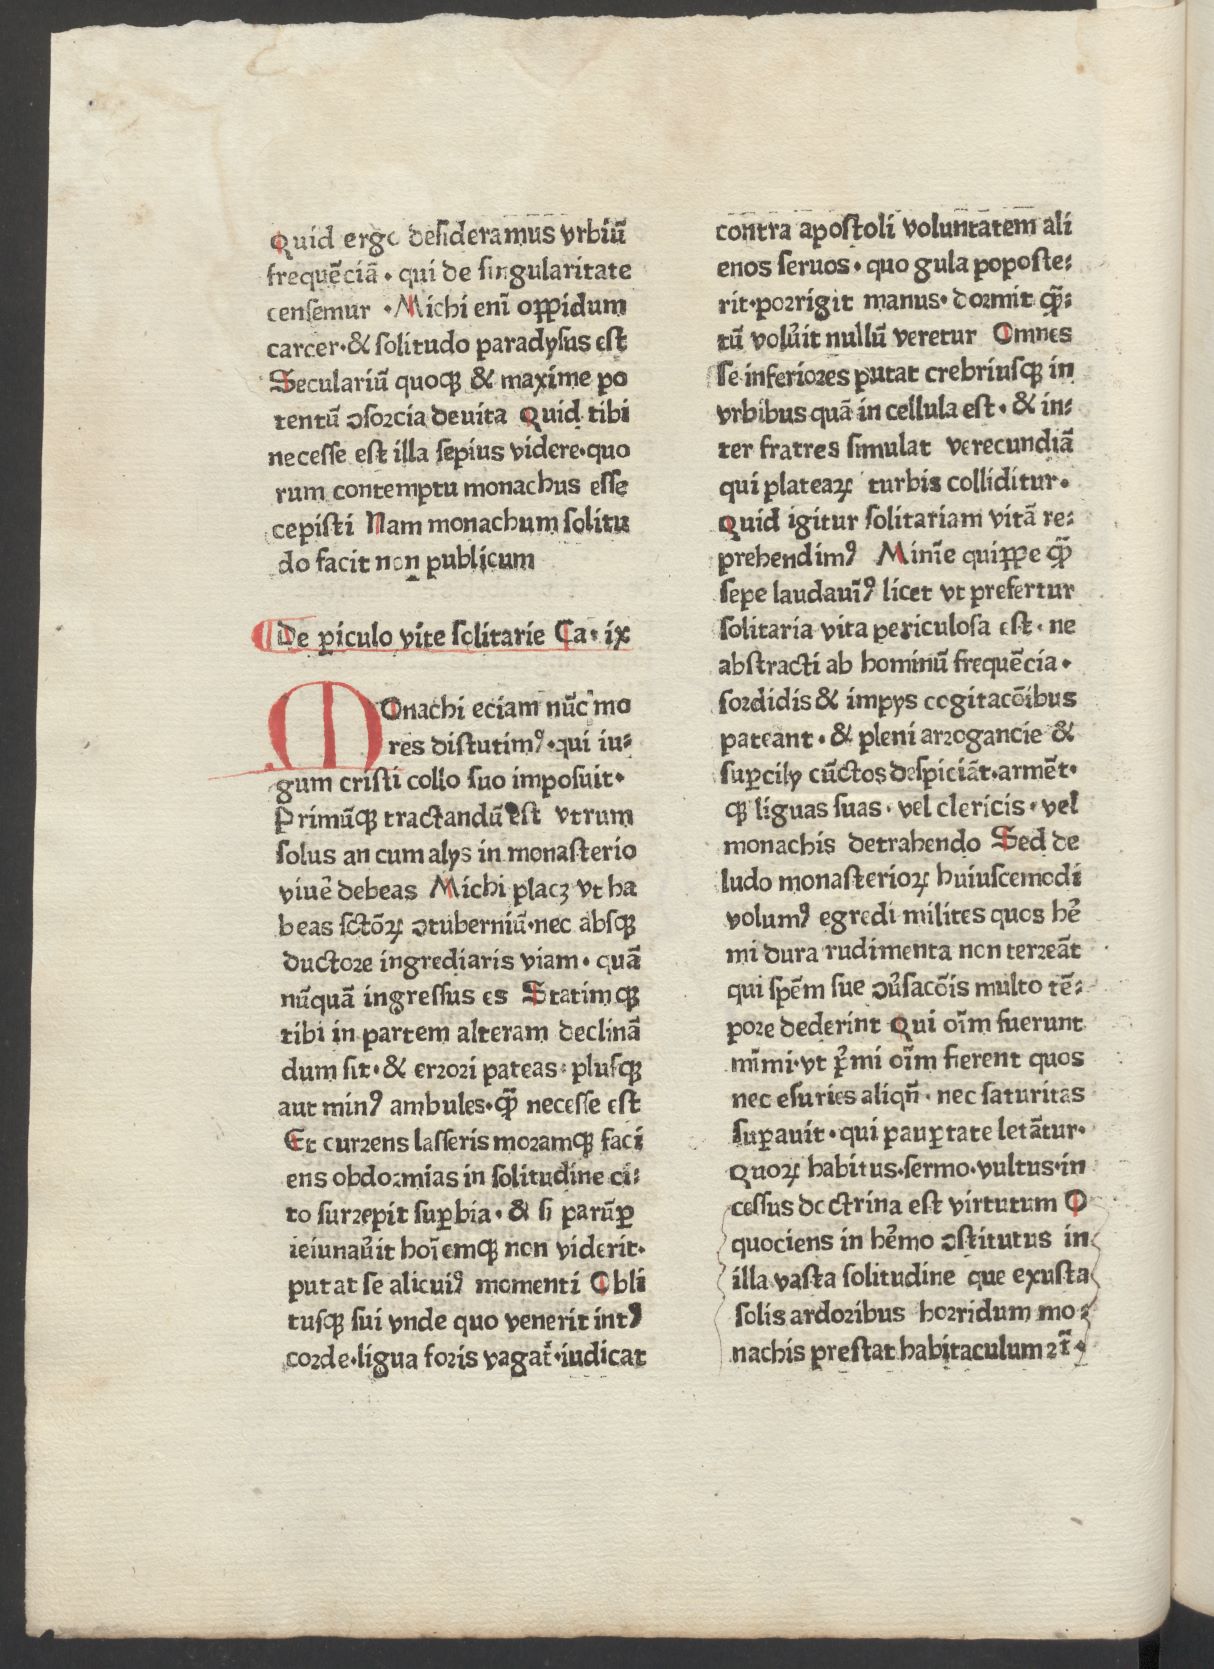 Quid ergo desideramus vrbiū
frequēciā · qui de singularitate
censemur · Michi enī oppidum
carcer · & solitudo paradysus est
Seculariū quoqꝫ & maxime po
tentū ↄsorcia deuita Quid tibi
necesse est illa sepius videre · quo
rum contemptu monachus esse
cepisti Nam monachum solitu
do facit non publicum
De ꝑiculo vite solitarie Ca · ix
MOnachi eciam nūc mo
res distutimꝰ · qui iu⸗
gum cristi collo suo imposuit ·
Primūqꝫ tractandū est vtrum
solus an cum alys in monasterio
viuē debeas Michi placꝫ vt ha
beas sctōꝝ ↄtuberniū · nec absqꝫ
ductore ingrediaris viam · quā
nūquā ingressus es Statimqꝫ
tibi in partem alteram declinā
dum sit · & errori pateas · plusqꝫ
aut minꝰ ambules · qꝫ̄ necesse est
Et currens lasseris moramqꝫ faci
ens obdormias in solitudine ci⸗
to surrepit suꝑbia · & si parūꝑ
ieiunau̓it hoīemqꝫ non viderit ·
putat se alicuiꝰ momenti Obli
tusqꝫ sui vnde quo venerit intꝰ
corde · ligua foris vagat᷑ · iudicat
contra apostoli voluntatem ali
enos seruos · quo gula poposte⸗
rit · porrigit manus · dormit qꝫ̄⸗
tū volu̓it nullū veretur Omnes
se inferiores putat crebriusqꝫ in
vrbibus quā in cellula est · & in⸗
ter fratres simulat verecundiā
qui plateaꝝ turbis colliditur ·
Quid igitur solitariam vitā re⸗
prehendimꝰ Minīe quippe qꝫ̄
sepe laudauīꝰ licet vt prefertur
solitaria vita periculosa est · ne
abstracti ab hominū frequēcia ·
sordidis & impys cogitacōibus
pateant · & pleni arrogancie &
suꝑcily cūctos despiciāt · armēt ·
qꝫ liguas suas · vel clericis · vel
monachis detrahendo Sed de
ludo monasterioꝝ huiuscemodi
volumꝰ egredi milites quos he̓
mi dura rudimenta non terreāt
qui spēm sue ↄu̓sacōis multo tē⸗
pore dederint Qui oīm fuerunt
mīmi · vt p̓mi oīm fierent quos
nec esuries aliqn̄ · nec saturitas
suꝑauit · qui pauꝑtate letātur ·
Quoꝝ habitus · sermo · vultus · in
cessus doctrina est virtutum O
quociens in he̓mo ↄstitutus in
illa vasta solitudine que exusta
solis ardoribus horridum mo⸗
nachis prestat habitaculum ꝛt̄ ·